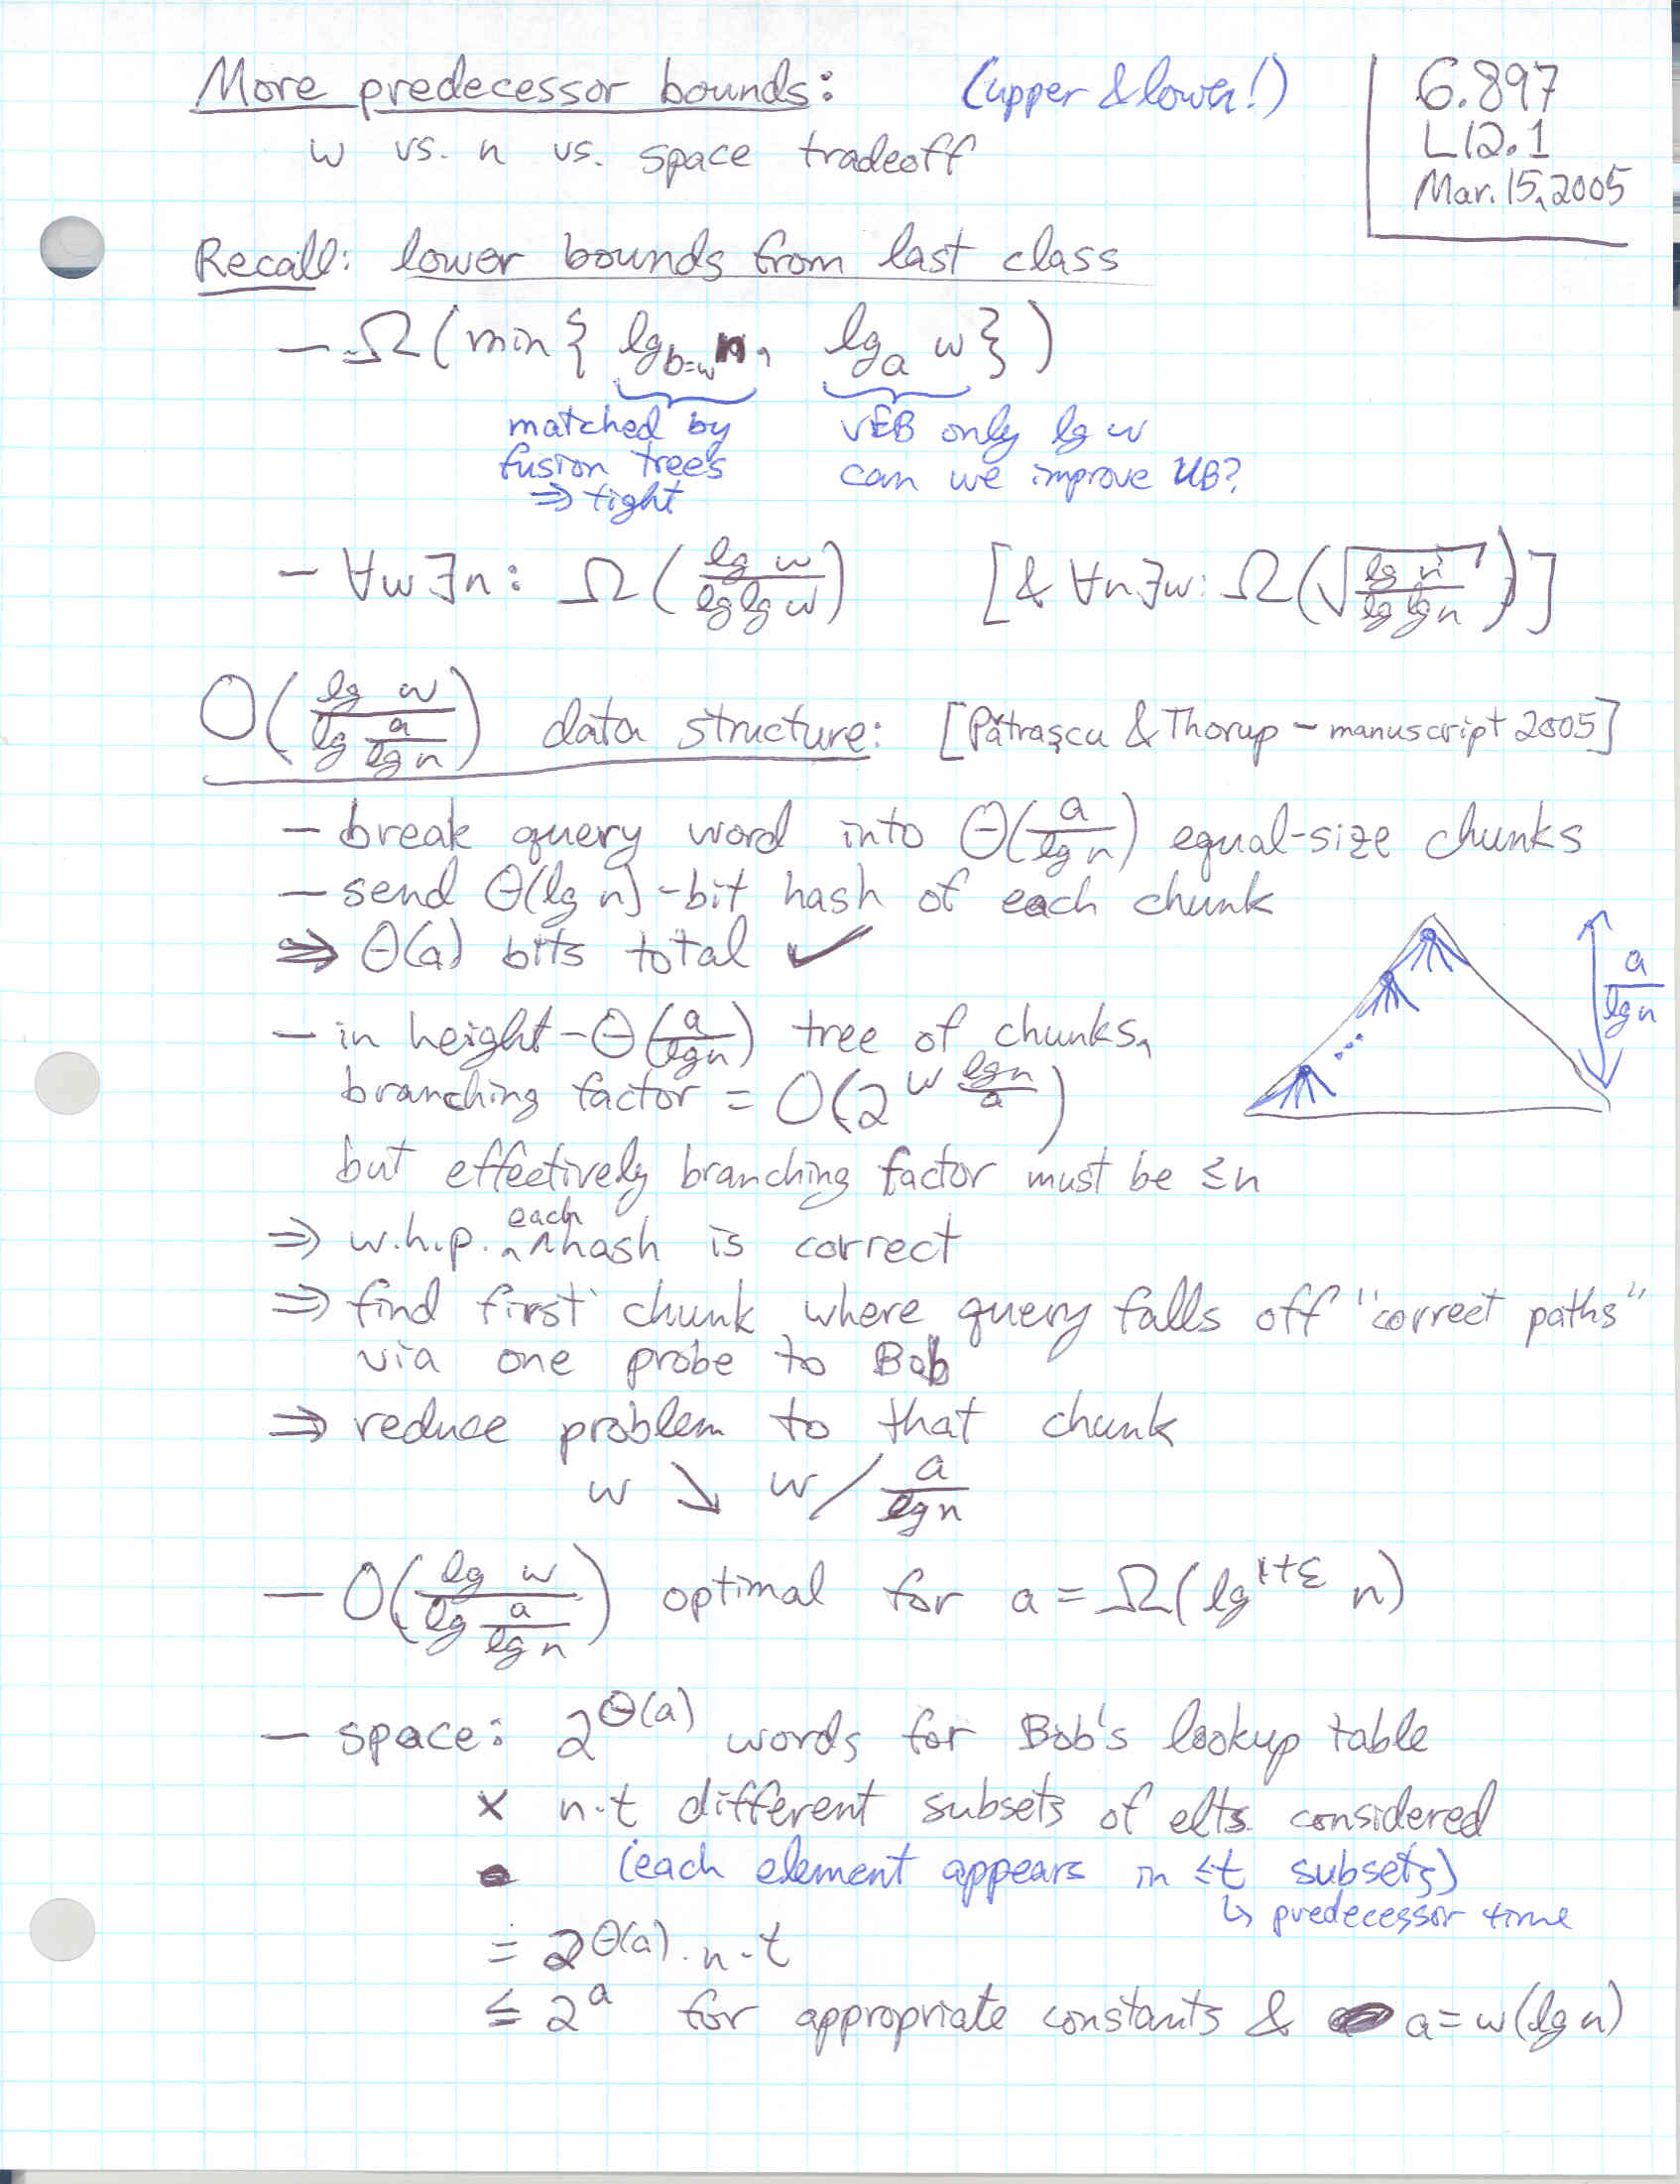 More predecessor bounds: (upper & lower!)
w vs. n vs. space tradeoff
6.897
L12.1
Mar. 15, 2005
Recall: lower bounds from last class
– Ω(min{ lg_{b=w} n, lg_a w })
matched by
fusion trees
⇒ tight
vEB only lg w
can we improve UB?
– ∀w∃n: Ω(lg w / lg lg w) [& ∀n∃w: Ω(√(lg n / lg lg n))]
O(lg w / lg (a / lg n)) data structure: [Pătraşcu & Thorup – manuscript 2005]
– break query word into Θ(a / lg n) equal-size chunks
– send Θ(lg n)-bit hash of each chunk
⇒ Θ(a) bits total ✓
– in height-Θ(a / lg n) tree of chunks,
branching factor = O(2^{w lg n / a})
a / lg n
but effectively branching factor must be ≤ n
⇒ w.h.p., each hash is correct
⇒ find first chunk where query falls off "correct paths"
via one probe to Bob
⇒ reduce problem to that chunk
w ↘ w / (a / lg n)
– O(lg w / lg (a / lg n)) optimal for a = Ω(lg^{1+ε} n)
– space: 2^{Θ(a)} words for Bob's lookup table
× n·t different subsets of elts. considered
(each element appears in ≤t subsets)
↳ predecessor time
= 2^{Θ(a)} · n·t
≤ 2^a for appropriate constants & a = ω(lg n)